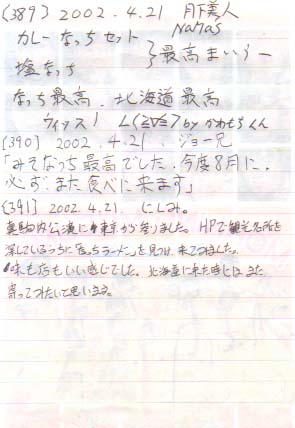 (389) 2002.4.21 月下美人
NaMaS
カレーなっちセット
塩なっち } 最高まいうー
なっち最高、北海道最高
ウィッス! L(≧∀≦)7 by かわむらくん
(390) 2002.4.21. ジョー兄
「みそなっち最高でした.今度8月に.
必ず また食べに来ます」
(391) 2002.4.21. にしみ。
公演に東京から参りました。HPで観光名所を
探しているうちに「なっちラーメン」を見つけ、来てみました。
味も店もいい感じでした。北海道に来た時には、また
寄ってみたいと思います。